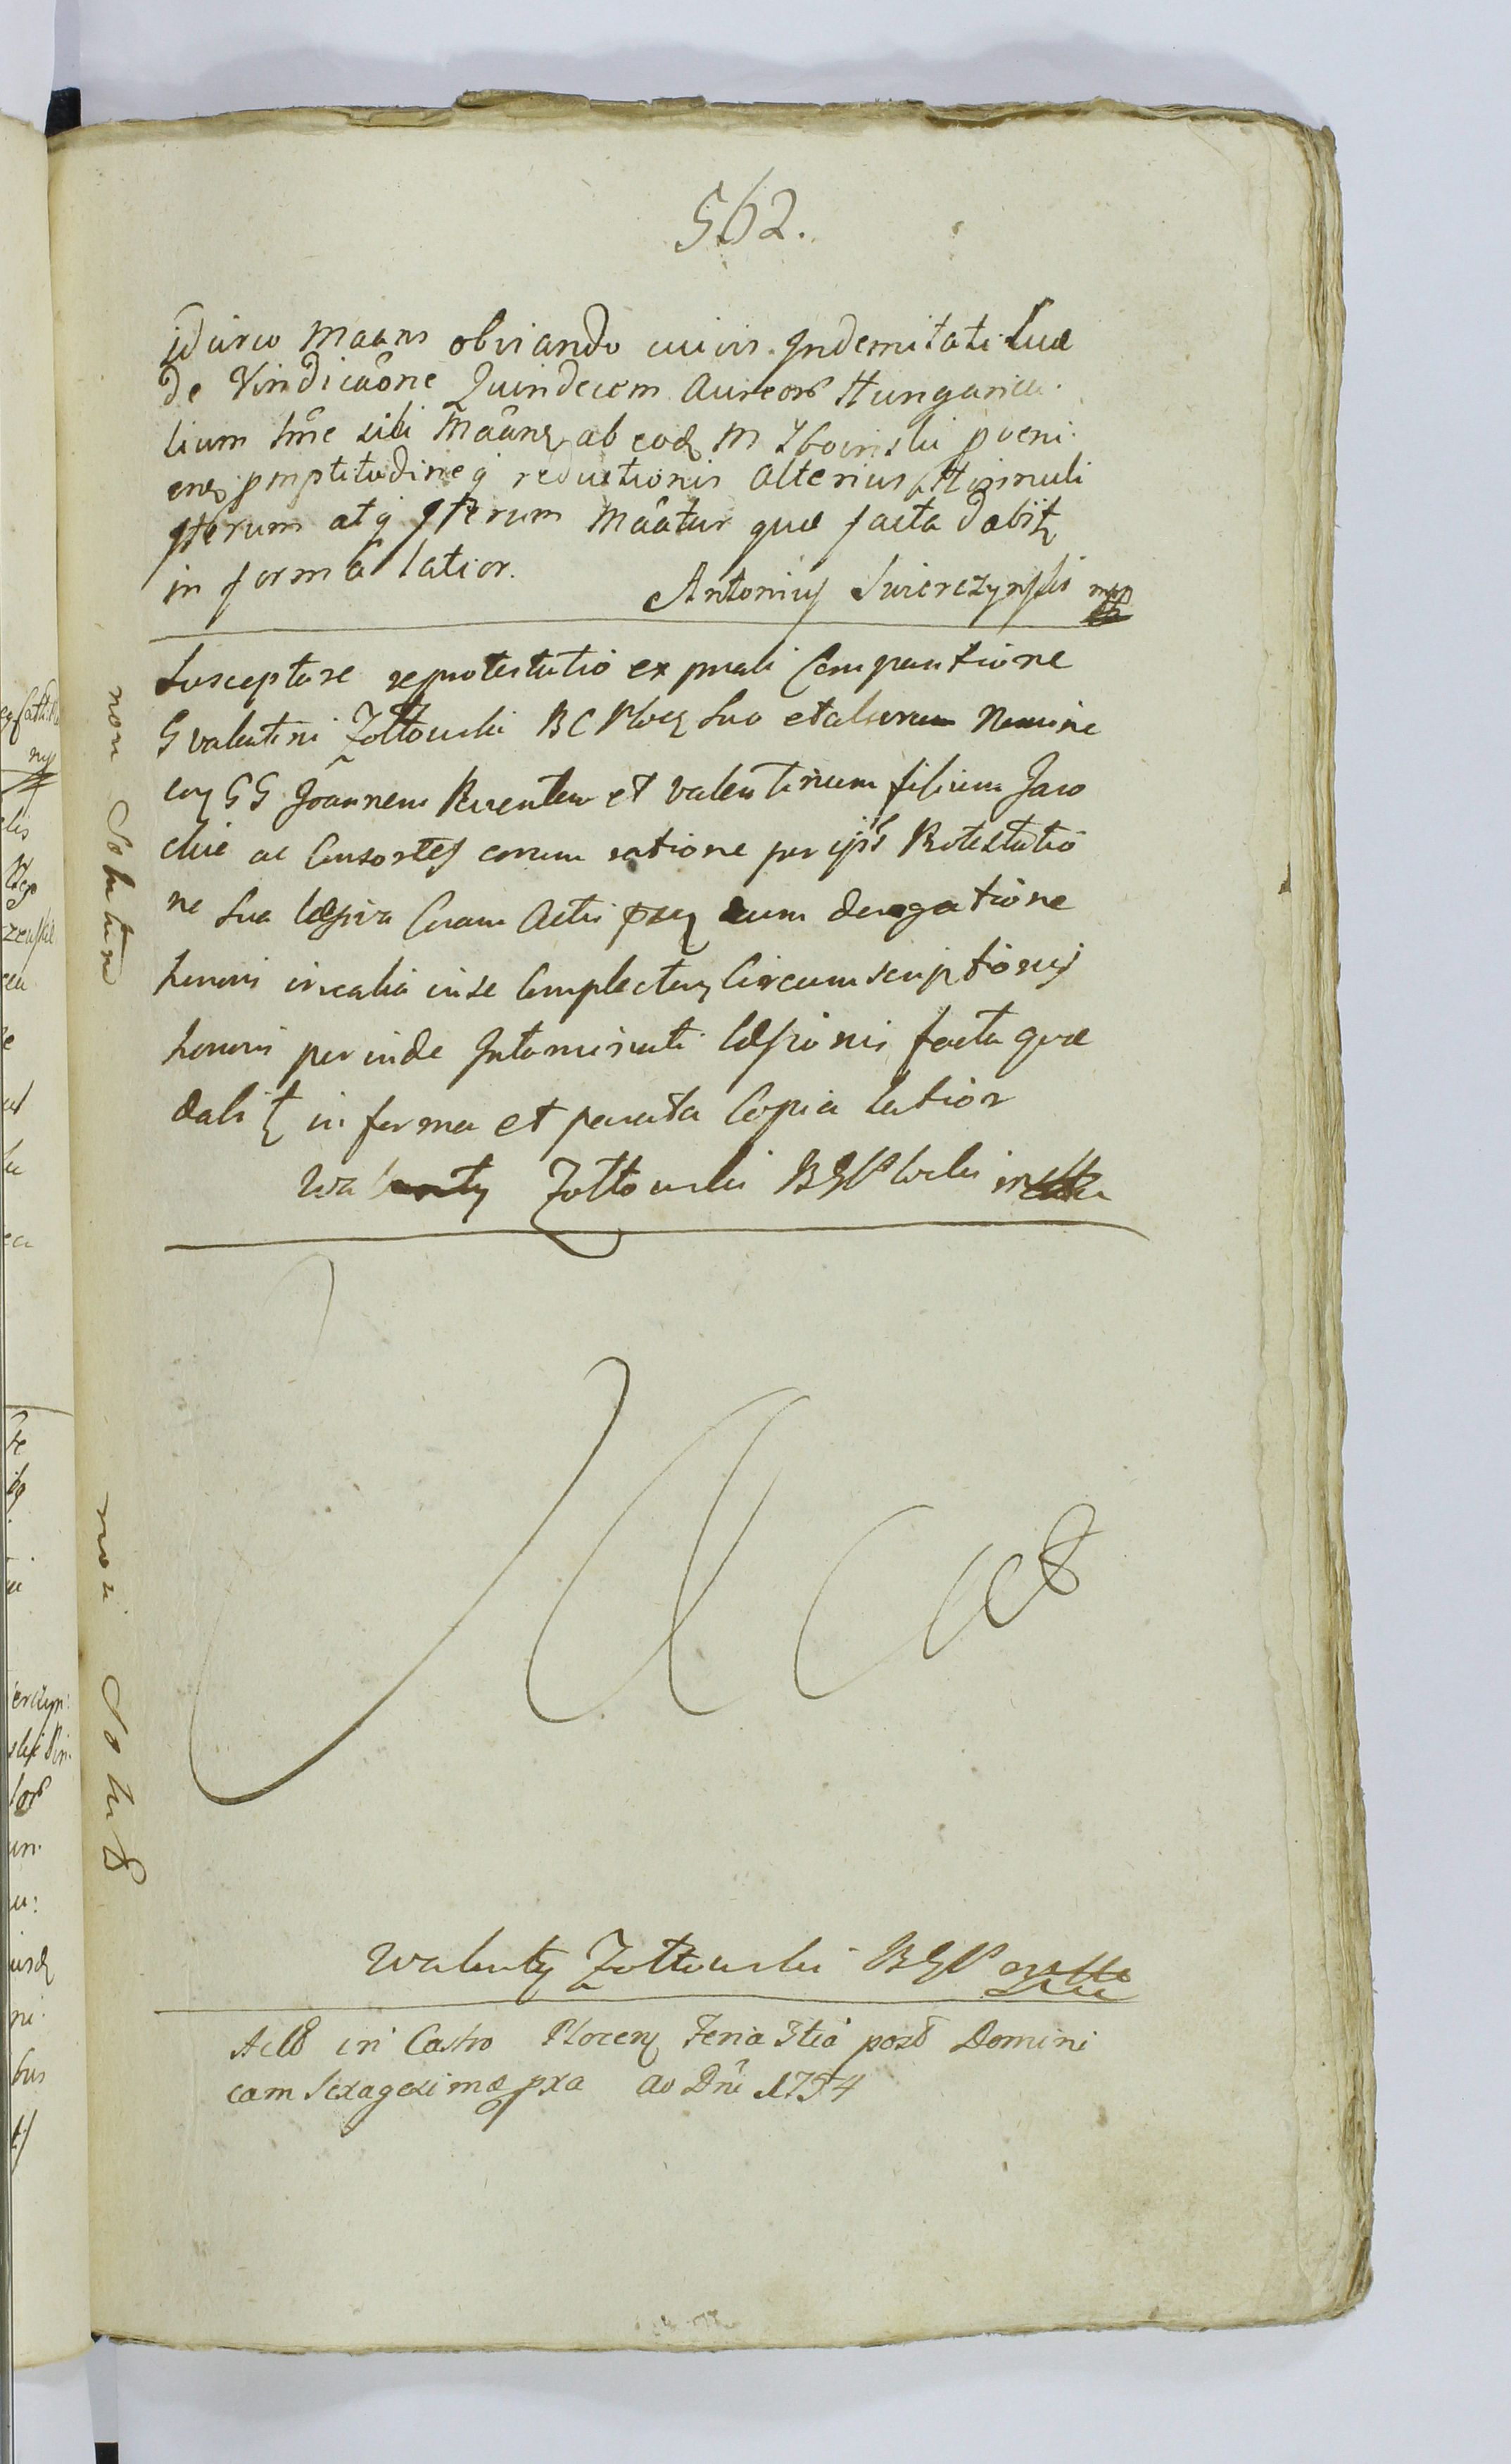 562.
idcirco Maans obviando cuivis Indemitati Suae
de Vindicaone Quindecem Aureor Hungarica
lium sme sibi Maans ab eod M Zboinski pveni
ens pmptitudineq reductionis Alterius Hinnuli
Iterum atq Iterum Maatur quae facta dabit
in forma latior.
Antonius Swierczynski mp
Susceptare reprotestatio ex prnali Comparitione
G Valentini Zołtowski BC Ploc Suo et aliorum Nomine
con GG Joannem Parentem et Valentinum filium Jaro
chie ac Consortes eorum ratione per ipss Protestatio
ne Sua laesiva Coram Actis pns cum derogatione
honori in realia in se Complecten Circumscriptionis
honori perinde Intaminati laesionis facta quae
dabit in forma et parata Copia latior
Walenty Zołtowski BGP
non Solutum
non Solut
Vacat
Walenty Zołtowski BGP
Act in Castro Plocen Feria 3tia post Domini
cam Sexagesimae pxa Ao Dni 1754